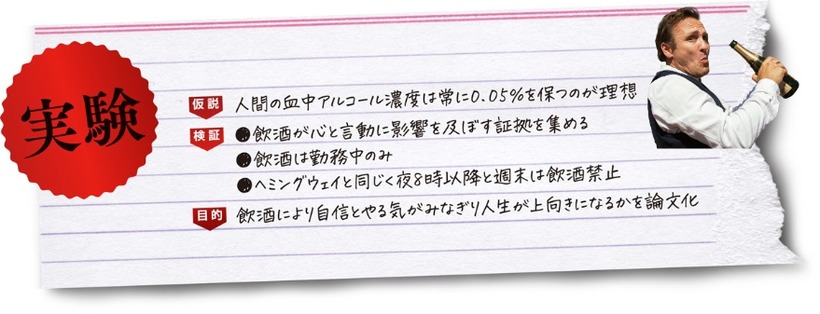 実験
仮説 人間の血中アルコール濃度は常に0.05%を保つのが理想
検証 ●飲酒が心と言動に影響を及ぼす証拠を集める
●飲酒は勤務中のみ
●ヘミングウェイと同じく夜8時以降と週末は飲酒禁止
目的 飲酒により自信とやる気がみなぎり人生が上向きになるかを論文化